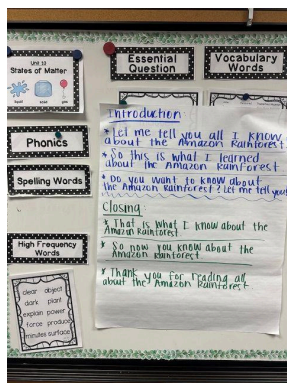 Unit 10
States of Matter
liquid solid gas
Phonics
Spelling Words
High Frequency
Words
clear object
dark plant
explain power
force produce
minutes surface
Essential
Question
Vocabulary
Words
Introduction
* Let me tell you all I know
about the Amazon Rainforest.
* So this is what I learned
about the Amazon Rainforest
* Do you want to know about
the Amazon Rainforest? Let me tell you!
Closing
* That is what I know about the
Amazon Rainforest
* So now you know about the
Amazon Rainforest
* Thank you for reading all
about the Amazon Rainforest